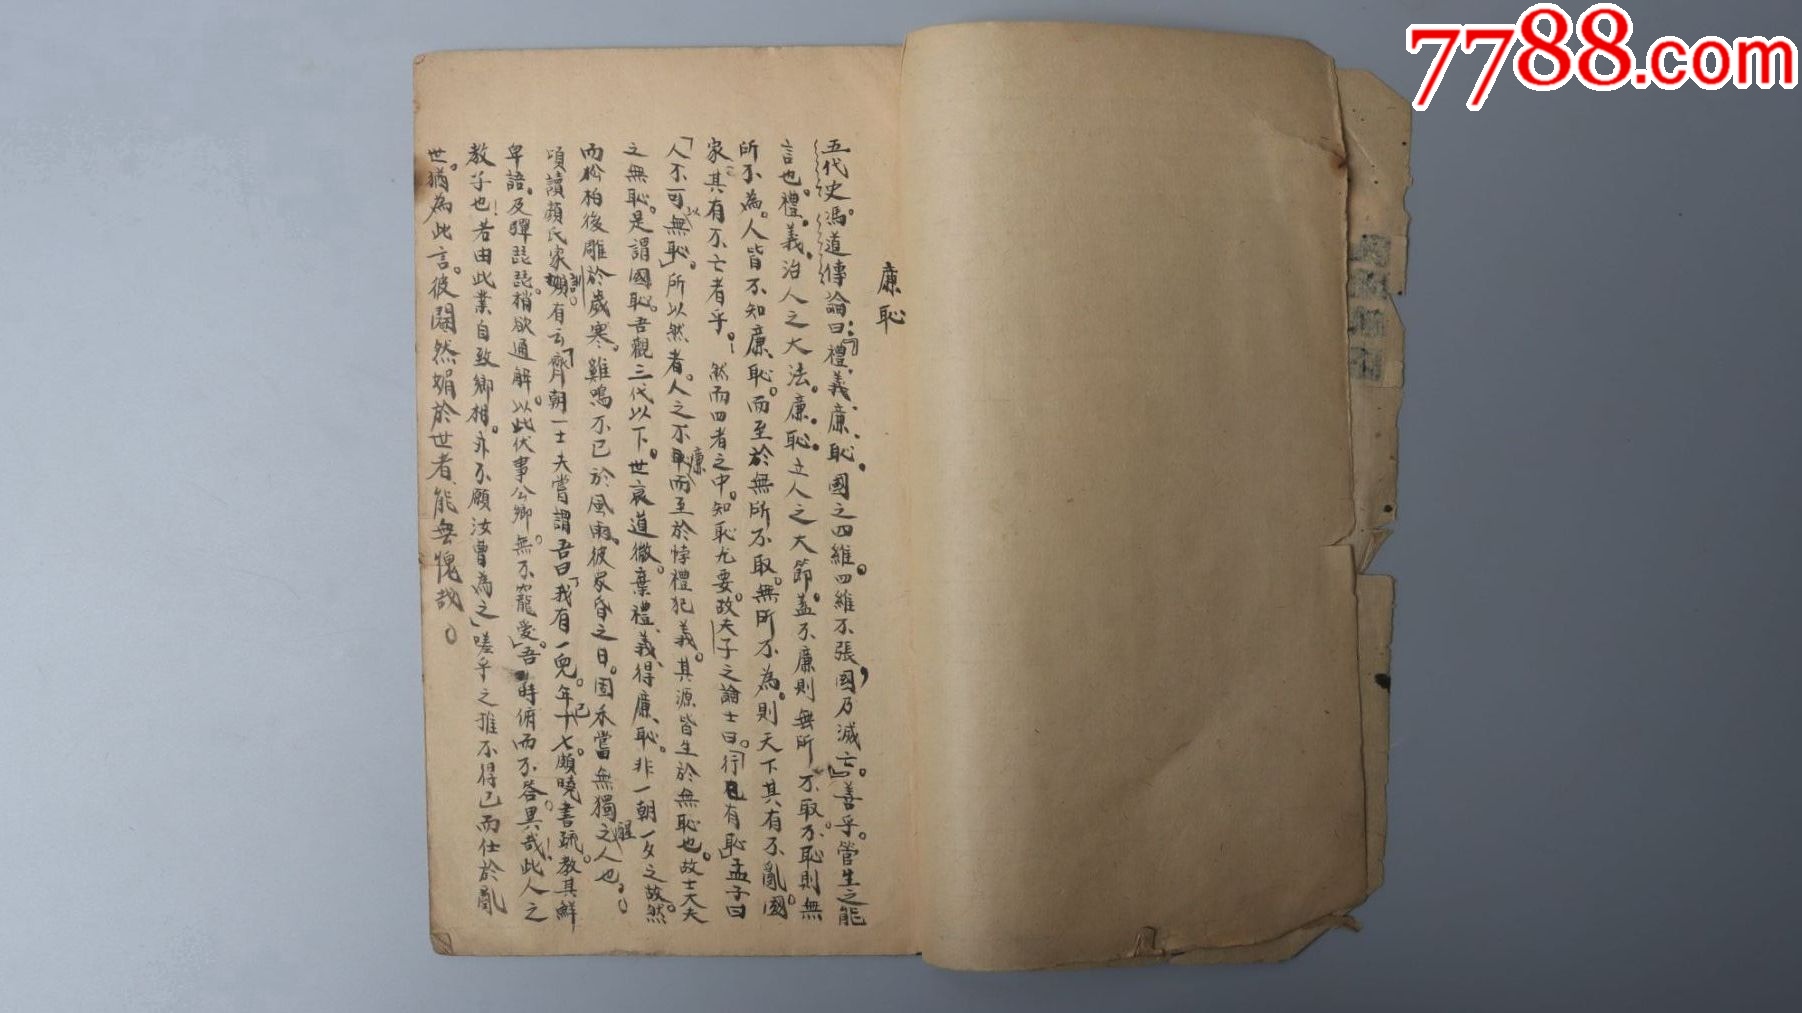 7788.com
廉恥
五代史馮道傳論曰：「禮、義、廉、恥，國之四維。四維不張，國乃滅亡。」善乎。管生之能
言也。禮、義、治人之大法。廉、恥、立人之大節。蓋不廉則無所不取。不恥則無
所不為。人皆不知廉、恥。而至於無所不取。無所不為。則天下其有不亂。國
家其有不亡者乎。！然而四者之中。知恥尤要。故夫子之論士曰。「行己有恥」孟子曰
「人不可以無恥。」所以然者。人之不廉而至於悖禮犯義。其源皆生於無恥也。故士大夫
之無恥。是謂國恥。吾觀三代以下。世衰道微。棄禮、義、得廉、恥。非一朝一夕之故。然
而松柏後雕於歲寒。雞鳴不已於風雨。彼眾昏之日。固未嘗無獨醒之人也。
頃讀顏氏家訓。有云「齊朝一士夫嘗謂吾曰「我有一兒。年已十七。頗曉書疏。教其鮮
卑語。及彈琵琶。稍欲通解。以此伏事公卿。無不寵愛。」吾時俯而不答。異哉！此人之
教子也！若由此業自致卿相。亦不願汝曹為之」嗟乎之推不得已而仕於亂
世。猶為此言。彼閹然媚於世者、能無愧哉。